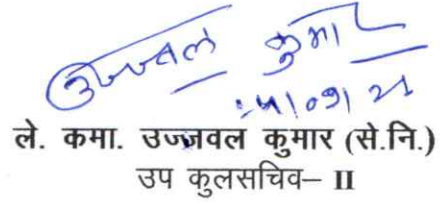 उज्जवल कुमार
ले. कमा. उज्जवल कुमार (से.नि.)
उप कुलसचिव– II